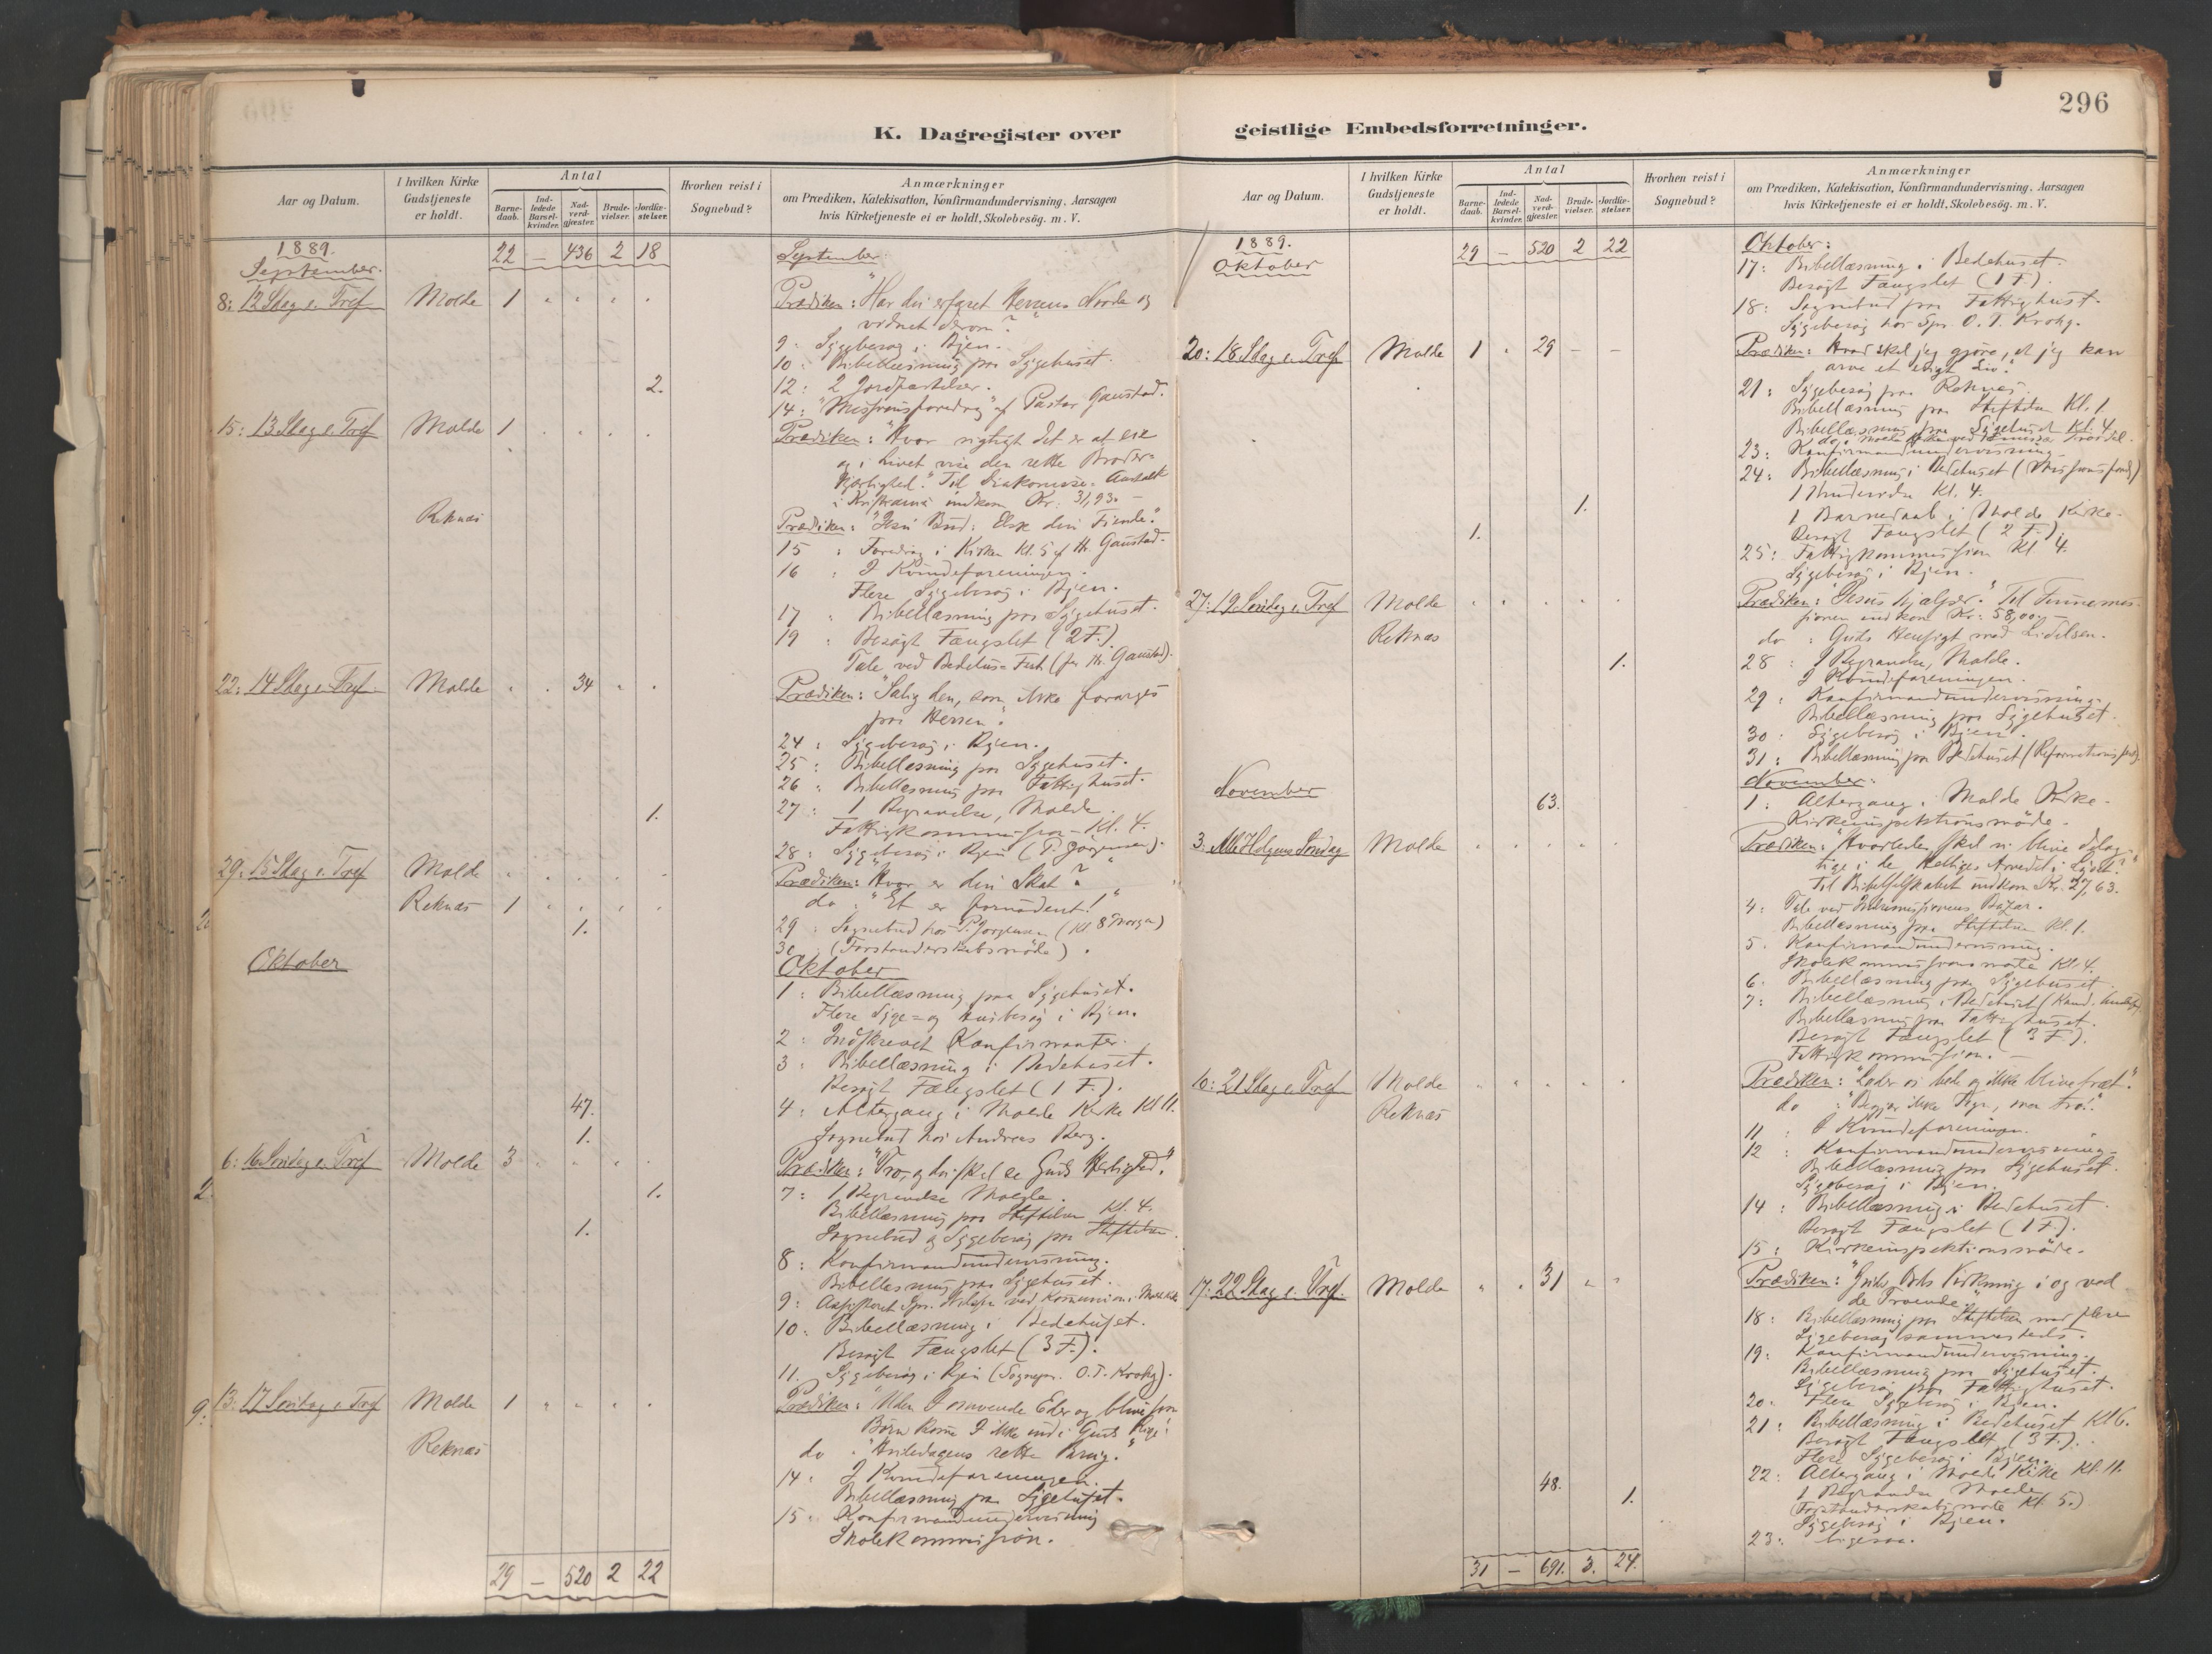 296
K. Dagregister over geistlige Embedsforretninger.
Aar og Datum.
I hvilken Kirke Gudstjeneste er holdt.
Antal
Barne-daab.
Ind-ledede Barsel-kvinder.
Nad-verd-gjæster.
Brude-vielser.
Jordfæ-stelser.
Hvorhen reist i Sognebud?
Anmærkninger
om Prædiken, Katekisation, Konfirmandundervisning, Aarsagen
hvis Kirketjeneste ei er holdt, Skolebesög. m. V.
1889. 22 – 436 2 18
September.
September:
8: 12 Sdag e. Tref Molde 1 " " " "
Prædiken: "Har du erfaret Herrens Naade og
vidnet derom?"
9: Sygebesøg i Byen.
10: Bibellæsning paa Sygehuset.
2. 12: 2 Jordfæstelser.
14: "Missionsforedrag" af Pastor Gaustad.
15: 13 Sdag e. Tref Molde 1 " " " "
Prædiken: "Hvor vigtigt det er at eie
og i Livet vise den rette Broder-
kjærlighed." Til Diakonisse-Anstalt
i Kristiania indkom Kr. 31,93.
Reknæs
Prædiken: "Jesu Bud: Elsk din Fiende."
15: Foredrag i Kirken Kl. 5 af Hr. Gaustad.
16: I Kvindeforeningen.
Flere Sygebesøg i Byen.
17: Bibellæsning paa Sygehuset.
19: Besøgt Fængslet (2 F.).
Tale ved Bedehus-Fest (for Hr. Gaustad).
22: 14 Sdag e. Tref. Molde " " 34 " "
Prædiken: "Salig den, som ikke forarges
paa Herren."
24: Sygebesøg i Byen.
25: Bibellæsning paa Sygehuset.
26: Bibellæsning paa Fattighuset.
1. 27: 1 Begravelse, Molde.
Fattigkommission – Kl. 4.
28: Sygebesøg i Byen (P. Jørgensen).
29: 15 Sdag e. Tref Molde " " " " "
Prædiken: "Hvor er din Skat?"
Reknæs 1 " " " "
do: "Et er fornødent!"
1. 29: Sognebud hos P. Jørgensen (Kl. 8 Morgen)
30: (Forstanderskabsmøde).
Oktober
Oktober
1: Bibellæsning paa Sygehuset.
Flere Syge- og Husbesøg i Byen.
2: Indskrevet Konfirmanter.
3: Bibellæsning i Bedehuset.
Besøgt Fængslet (1 F.).
47. 4: Altergang i Molde Kirke Kl. 11.
1. Sognebud hos Andreas Berg.
6: 16 Søndag e. Tref Molde 3 " " " "
Prædiken: "Tro, og du skal se Guds Herlighed."
1. 7: 1 Begravelse Molde.
Bibellæsning paa Stiftelsen Kl. 4.
1. Sognebud og Sygebesøg paa Stiftelsen.
8: Konfirmandundervisning.
Bibellæsning paa Sygehuset.
9: Assisteret Spr. ved Kommunion i Molde Kirke
10: Bibellæsning i Bedehuset.
Besøgt Fængslet (3 F.).
11. Sygebesøg i Byen (Sognepr. O. T. Krohg).
13: 17 Søndag e. Tref Molde 1 " " " "
Prædiken: "Uden I omvende Eder og blive som
Børn komme I ikke ind i Guds Rige!
Reknæs
do: "Hviledagens rette Brug."
14: I Kvindeforeningen.
Bibellæsning paa Sygehuset.
15: Konfirmandundervisning
Skolekommission.
29 – 520 2 22
Aar og Datum.
I hvilken Kirke Gudstjeneste er holdt.
Antal
Barne-daab.
Ind-ledede Barsel-kvinder.
Nad-verd-gjæster.
Brude-vielser.
Jordfæ-stelser.
Hvorhen reist i Sognebud?
Anmærkninger
om Prædiken, Katekisation, Konfirmandundervisning, Aarsagen
hvis Kirketjeneste ei er holdt, Skolebesög. m. V.
1889. 29 – 520 2 22
Oktober
Oktober:
17: Bibellæsning i Bedehuset.
Besøgt Fængslet (1 F.).
18: Sognebud paa Fattighuset.
Sygebesøg hos Spr. O. T. Krohg.
20: 18 Sdag e. Tref Molde 1 " 29 – –
Prædiken: Hvad skal jeg gjøre, at jeg kan
arve et evigt Liv."
21: Sygebesøg paa Reknæs.
Bibellæsning paa Stiftelsen Kl. 1.
Bibellæsning paa Sygehuset Kl. 4.
23: Konfirmandundervisning.
24: Bibellæsning i Bedehuset (Missionsfond)
1. 1 Brudevielse Kl. 4.
1. 1 Barnedaab i Molde Kirke.
Besøgt Fængslet (2 F.).
25: Fattigkommission Kl. 4.
Sygebesøg i Byen.
27: 19 Søndag e. Tref Molde " " " " "
Prædiken: "Jesus hjælper." Til Finnemis-
sionen indkom Kr: 58,00.
Reknæs
do: Guds Hensigt med Lidelsen.
1. 28: 1 Begravelse, Molde.
I Kvindeforeningen.
29: Konfirmandundervisning.
Bibellæsning paa Sygehuset.
30: Sygebesøg i Byen.
31: Bibellæsning paa Bedehuset (Reformationsfest)
November
November:
63. 1: Altergang i Molde Kirke.
Kirkeinspektionsmøde.
3: Alle Helgens Søndag Molde " " " " "
Prædiken: "Hvorledes skal vi blive delag-
tige i de Helliges Arvedel i Lyset?"
Til Bibelselskabet indkom Kr. 27,63.
4: Tale ved Indremissionens Bazar.
Bibellæsning paa Stiftelsen Kl. 1.
5. Konfirmandundervisning.
Skolekommissionsmøte Kl. 4.
6. Bibellæsning paa Sygehuset.
7: Bibellæsning i Bedehuset
Bibellæsning paa Fattighuset.
Besøgt Fængslet (3 F.).
Fattigkommission.
10: 21 Sdag e. Tref Molde " " " " "
Prædiken: "Lader os bede og ikke blive træt."
Reknæs
do: "Begjær ikke Tegn, men tro!"
11: I Kvindeforeningen.
12: Konfirmandundervisning.
Bibellæsning paa Sygehuset.
Sygebesøg i Byen.
14: Bibellæsning i Bedehuset.
Besøgt Fængslet (1 F.).
15: Kirkeinspektionsmøde.
17: 22 Sdag e. Tref. Molde " " 31 " "
Prædiken: Ords Virkning i og ved
de Troende."
18: Bibellæsning paa Stiftelsen med flere
Sygebesøg sammesteds.
19: Konfirmandundervisning.
Bibellæsning paa Sygehuset.
Sygebesøg paa Fattighuset.
20: Flere Sygebesøg i Byen.
21: Bibellæsning i Bedehuset Kl. 6.
Besøgt Fængslet (3 F.).
Flere Sygebesøg i Byen.
48. 22: Altergang i Molde Kirke Kl. 11.
1. 1 Begravelse Molde
(Forstanderskabsmøte Kl. 5.)
Sygebesøg i Byen.
23: ligesaa.
31 – 691. 3. 24.